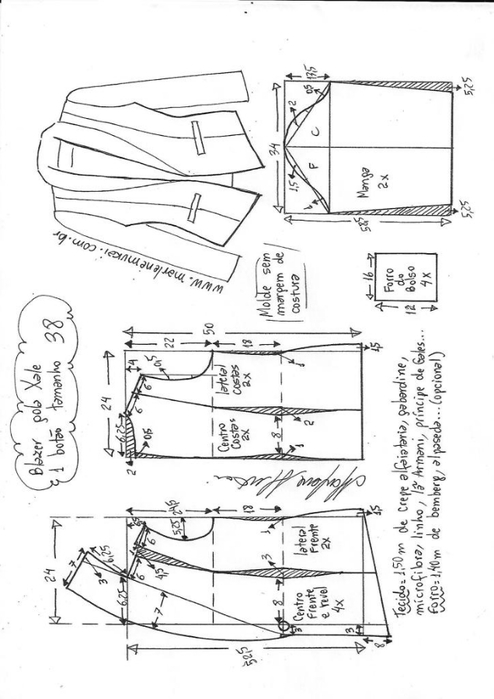 Blazer gola Xale
1 botão tamanho 38
www.marlenemukai.com.br
Molde sem
margem de
costura
34
13,5
0,5
2
C
F
1,5
Manga
2x
58,5
5,25
5,25
16
Forro
do
Bolso
4x
12
50
22
18
24
4
6
6
6,25
0,5
2
lateral
costas
2x
Centro
Costas
2x
8
1
2
1,5
24
7
3
6,25
6,25
6
6
4,5
5,25
18
7
8
3
1
lateral
Frente
2x
Centro
Frente
e revel
4x
3
3
8
1,5
52,5
Tecido= 1,50m de crepe alfaiataria, gabardine,
microfibra, linho, lã Armani, príncipe de Gales...
Forro= 1,40m de bemberg, alpaseda...(opcional)